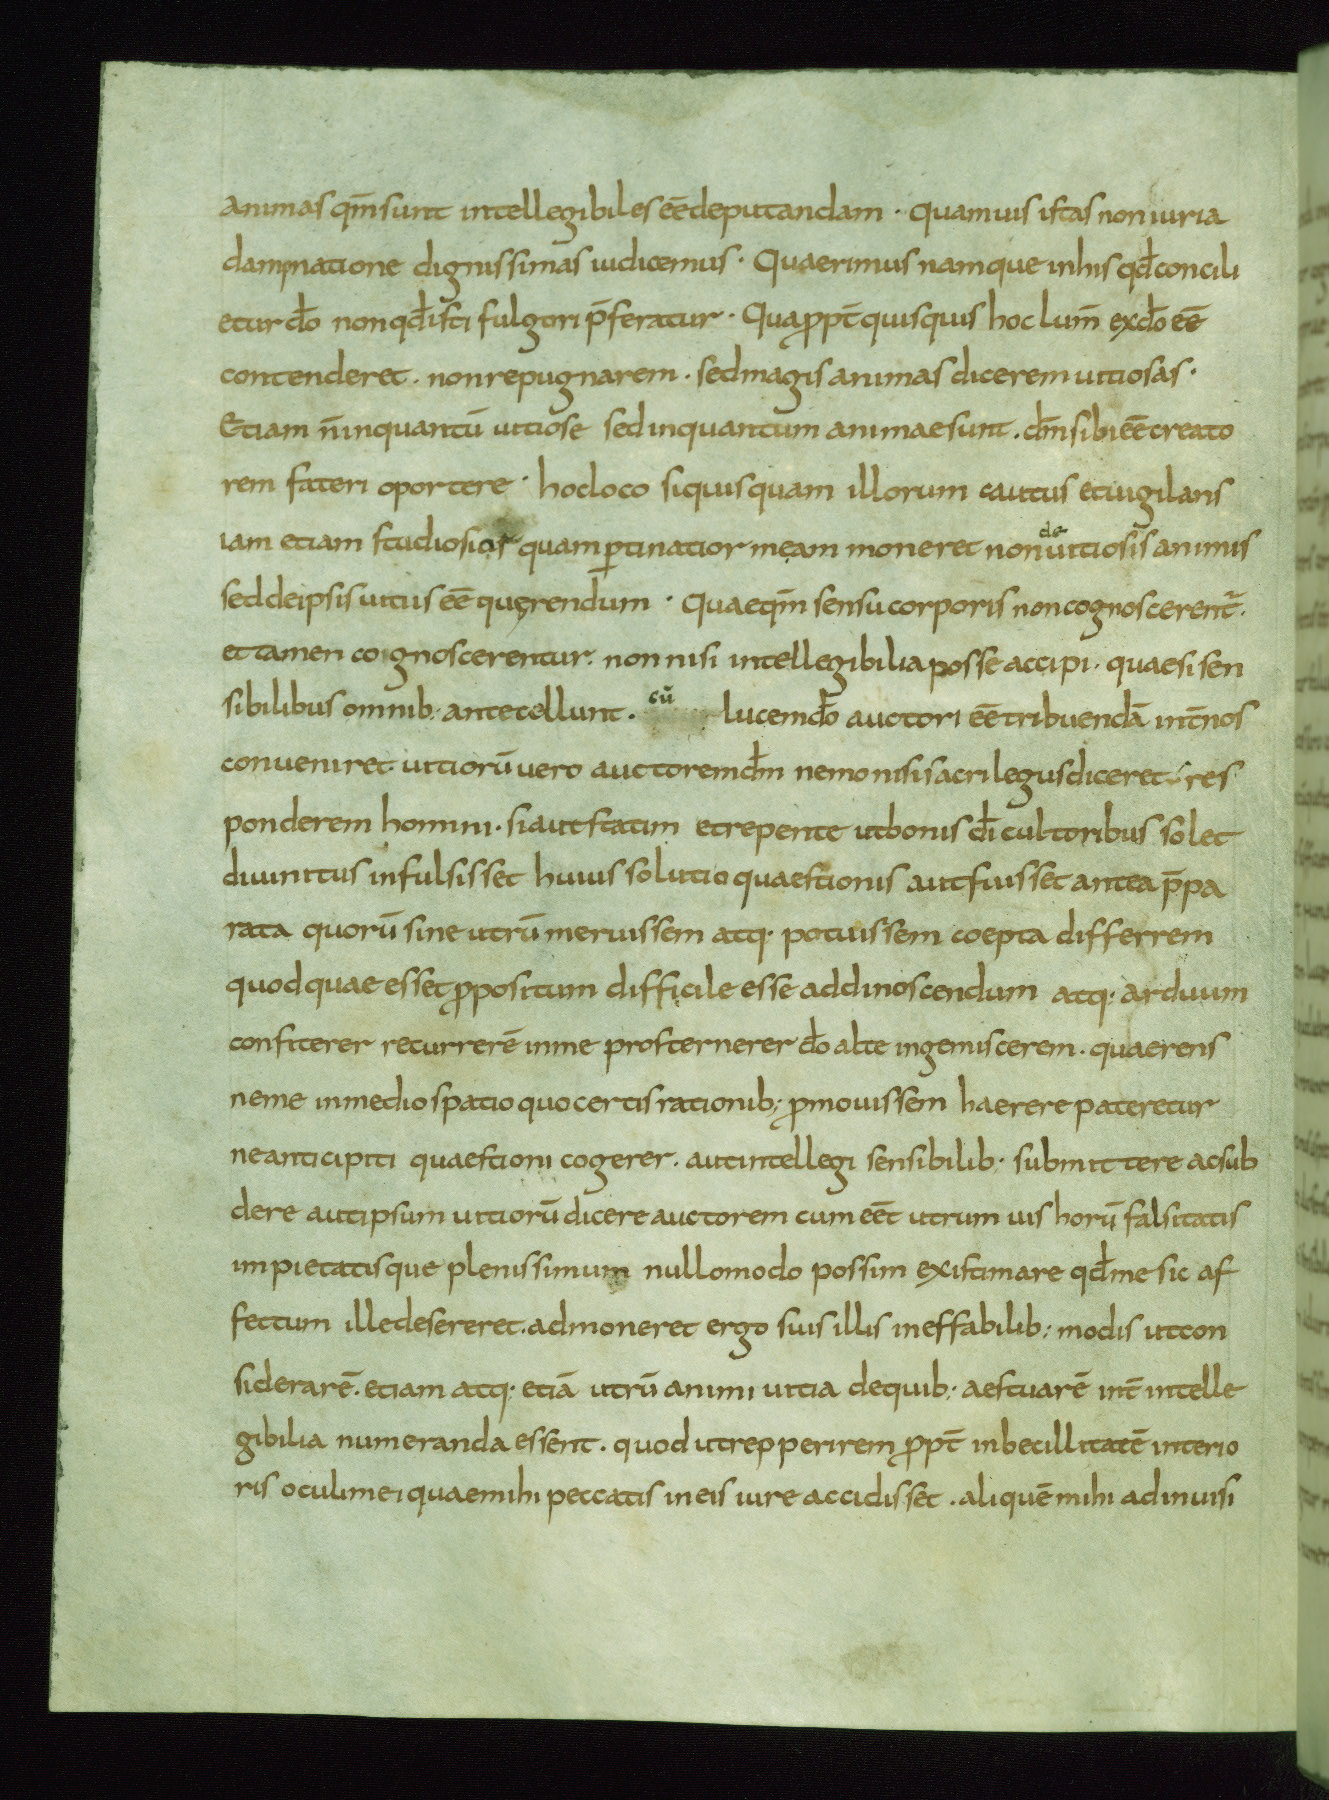 animas qm̄ sunt intellegibiles eē deputandam · quamuis istas non iuria
dampnatione dignissimas iudicemus · Quaerimus namque in his qđ concili
etur dō non qđ isti fulgori p̄feratur · Quapropt̄ quisquis hoc lum̄ ex dō eē
contenderet · non repugnarem · sed magis animas dicerem uitiosas ·
Etiam n̄ inquantū uitiose sed inquantum animae sunt · dm̄ sibi eē creato
rem fateri oportere · hoc loco siquisquam illorum cautus et uigilans
iam etiam studiosior quam ꝑtinatior meam moneret non de uitiosis animis
sed de ipsis uitiis eē quęrendum · Quae qm̄ sensu corporis non cognoscerent̄ ·
et tamen coignoscerentur · non nisi intellegibilia posse accipi · quae si sen
sibilibus omnib; antecellunt · cū lucem dō auctori eē tribuendā int̄ nos
conueniret · uitiorū uero auctorem dm̄ nemo nisi sacrilegus diceret · res
ponderem homini · si aut statim et repente ut bonis dī cultoribus solet
diuinitus infulsisset huius solutio quaestionis aut fuisset antea p̄pa
rata quorū sine utrū meruissem atq; potuissem coepta differrem
quodquae esset ꝓpositum difficile esse addinoscendum atq; arduum
confiterer recurrerē in me prosternerer dō alte ingemiscerem · quaerens
ne me in medio spatio quo certis rationib; ꝓmouissem haerere pateretur
ne ancipiti quaestioni cogerer · aut intellegi sensibilib; submittere ac sub
dere aut ipsum uitiorū dicere auctorem cum eēt utrum uis horū falsitatis
impietatisque plenissimum nullo modo possim existimare qđ me sic af
fectum ille desereret · admoneret ergo suis illis ineffabilib; modis ut con
siderarē · etiam atq; etiā utrū animi uitia de quib; aestuarē int̄ intelle
gibilia numeranda essent · quod ut repperirem ꝓpt̄ inbecillitatē interio
ris oculi mei quae mihi peccatis in eis iure accidisset · aliquē mihi ad inuisi